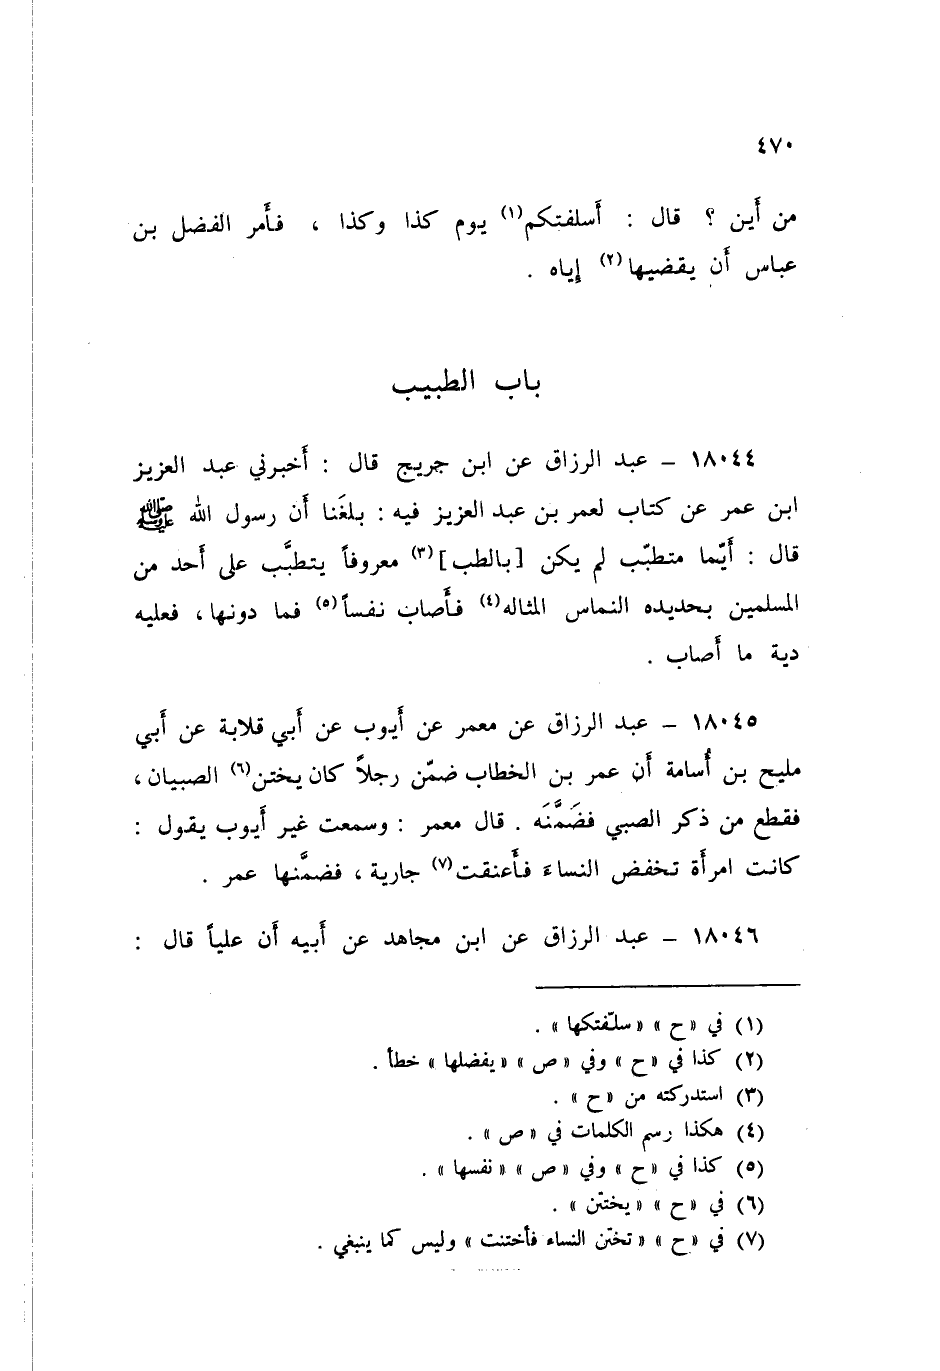 ٤٧٠
من أَين ؟ قال : أَسلفتكم(١) يوم كذا وكذا ، فأَمر الفضل بن
عباس أَن يقضيها(٢) إِياه .
باب الطبيب
١٨٠٤٤ – عبد الرزاق عن ابن جريج قال : أَخبرني عبد العزيز
ابن عمر عن كتاب لعمر بن عبد العزيز فيه : بلغَنا أَن رسول الله ﷺ
قال : أَيّما متطبّب لم يكن [بالطب](٣) معروفاً يتطبَّب على أَحد من
المسلمين بحديده النماس المثاله(٤) فأَصاب نفساً(٥) فما دونها ، فعليه
دية ما أَصاب .
١٨٠٤٥ – عبد الرزاق عن معمر عن أَيوب عن أَبي قلابة عن أَبي
مليح بن أُسامة أَن عمر بن الخطاب ضمّن رجلاً كان يختن(٦) الصبيان ،
فقطع من ذكر الصبي فضَمَّنَه . قال معمر : وسمعت غير أَيوب يقول :
كانت امرأَة تخفض النساءَ فأَعنقت(٧) جارية ، فضمَّنها عمر .
١٨٠٤٦ – عبد الرزاق عن ابن مجاهد عن أَبيه أَن علياً قال :
(١) في « ح » « سلّفتكها » .
(٢) كذا في « ح » وفي « ص » « يفضلها » خطأ .
(٣) استدركته من « ح » .
(٤) هكذا رسم الكلمات في « ص » .
(٥) كذا في « ح » وفي « ص » « نفسها » .
(٦) في « ح » « يختّن » .
(٧) في « ح » « تختّن النساء فأختنت » وليس كما ينبغي .